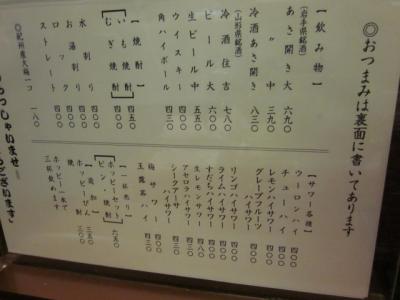 ◎おつまみは裏面に書いてあります
【飲み物】
(岩手県銘酒)
あさ開き大 六九〇
〃 中 三九〇
冷酒あさ開き 八三〇
(山形県銘酒)
冷酒住吉 七八〇
ビール大 六〇〇
生ビール中 五五〇
ウイスキー 四三〇
角ハイボール 四三〇
【焼酎】
いも焼酎
むぎ焼酎
四五〇
水割り 四〇〇
お湯割り 四〇〇
ロック 四〇〇
ストレート 四〇〇
◎紀州産大梅一つ 一八〇
【サワー各種】
ウーロンハイ 四〇〇
チューハイ 四〇〇
レモンハイサワー 四〇〇
グレープフルーツハイサワー 四〇〇
リンゴハイサワー 四〇〇
ライムハイサワー 四〇〇
すだちハイサワー 四〇〇
生レモンサワー 四八〇
アセロラハイサワー 四三〇
シークワーサーハイサワー 四三〇
梅サワー 四三〇
玉露茶ハイ 四三〇
【一杯売り】
ホッピーセット
ビン 焼酎
六五〇
【追加】
ホッピーびん 三五〇
焼酎 三〇〇
ホッピー一本で
三杯飲めます